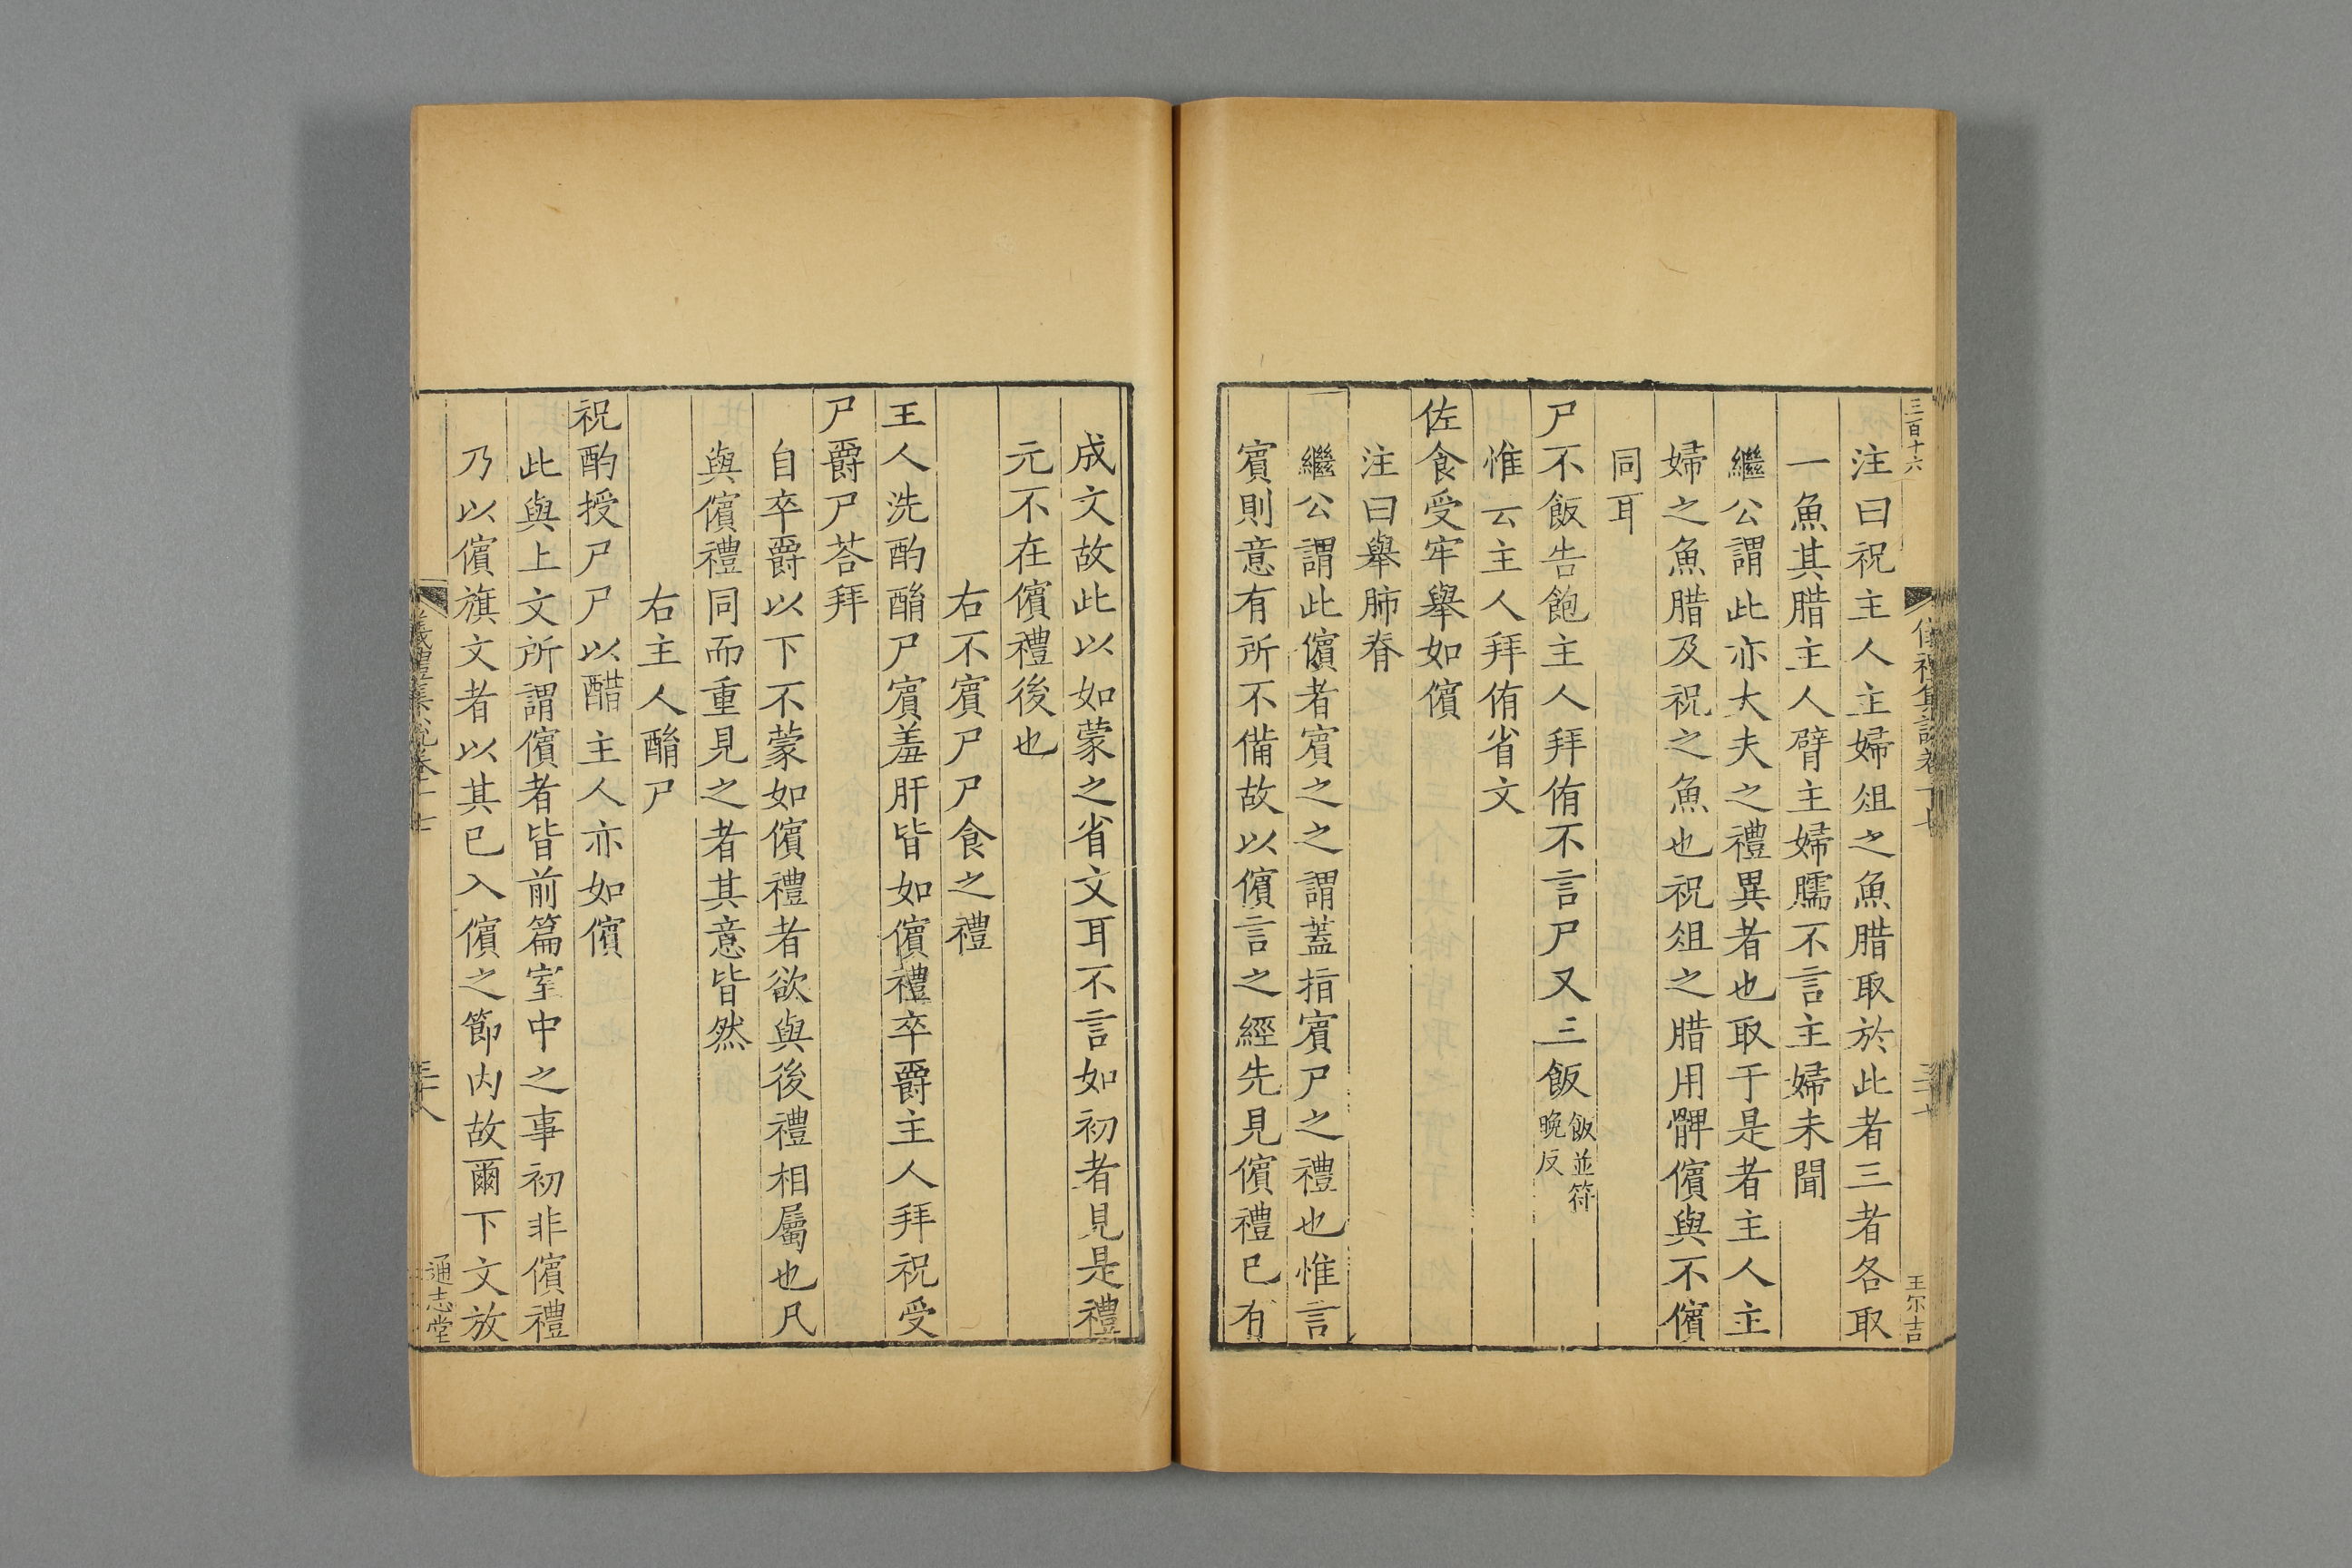 三百十六
王尒吉
注曰祝主人主婦俎之魚腊取於此者三者各取
一魚其腊主人臂主婦臑不言主婦未聞
繼公謂此亦大夫之禮異者也取于是者主人主
婦之魚腊及祝之魚也祝俎之腊用髀儐與不儐
同耳
尸不飯告飽主人拜侑不言尸又三飯飯並符晚反
惟云主人拜侑省文
佐食受牢舉如儐
注曰舉肺脊
繼公謂此儐者賓之之謂蓋指賓尸之禮也惟言
賓則意有所不備故以儐言之經先見儐禮已有
成文故此以如蒙之省文耳不言如初者見是禮
元不在儐禮後也
右不賓尸尸食之禮
王人洗酌酳尸賓羞肝皆如儐禮卒爵主人拜祝受
尸爵尸荅拜
自卒爵以下不蒙如儐禮者欲與後禮相屬也凡
與儐禮同而重見之者其意皆然
右主人酳尸
祝酌授尸尸以醋主人亦如儐
此與上文所謂儐者皆前篇室中之事初非儐禮
乃以儐旗文者以其已入儐之節內故爾下文放
儀禮集說卷十七
三十八
通志堂